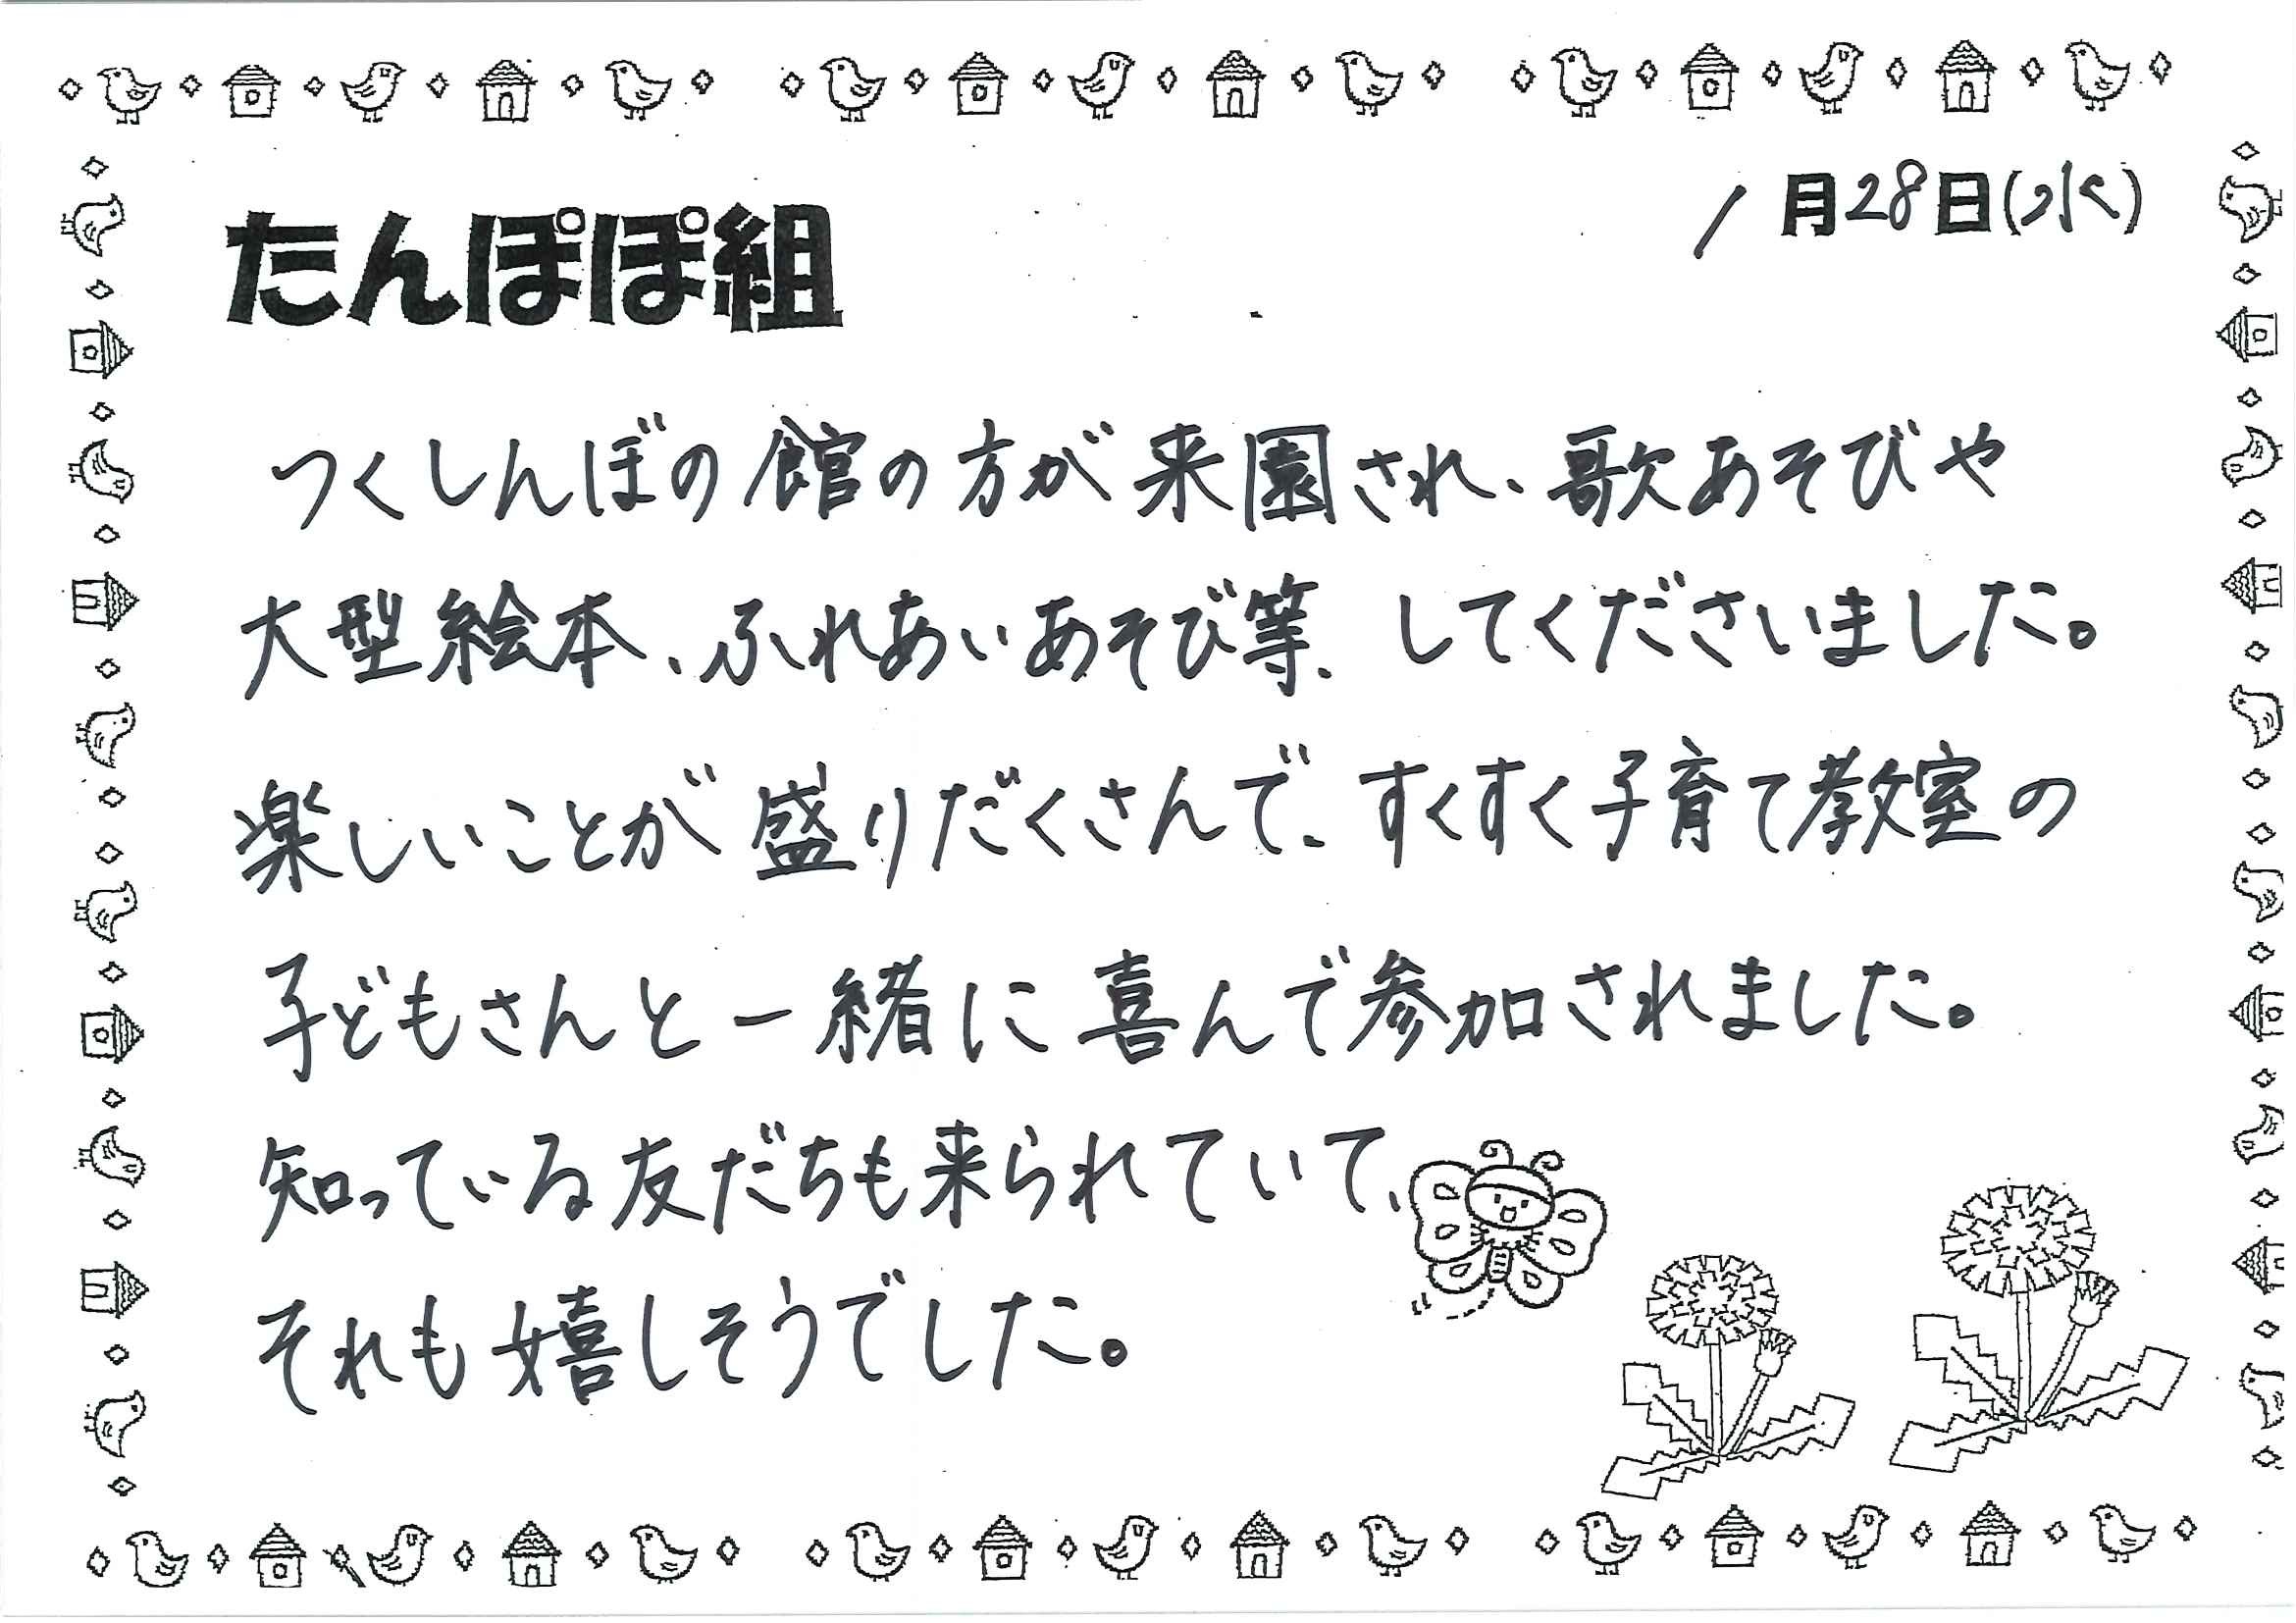 1月28日(水)
たんぽぽ組
つくしんぼの館の方が来園され、歌あそびや
大型絵本、ふれあいあそび等、してくださいました。
楽しいことが盛りだくさんで、すくすく子育て教室の
子どもさんと一緒に喜んで参加されました。
知っている友だちも来られていて、
それも嬉しそうでした。